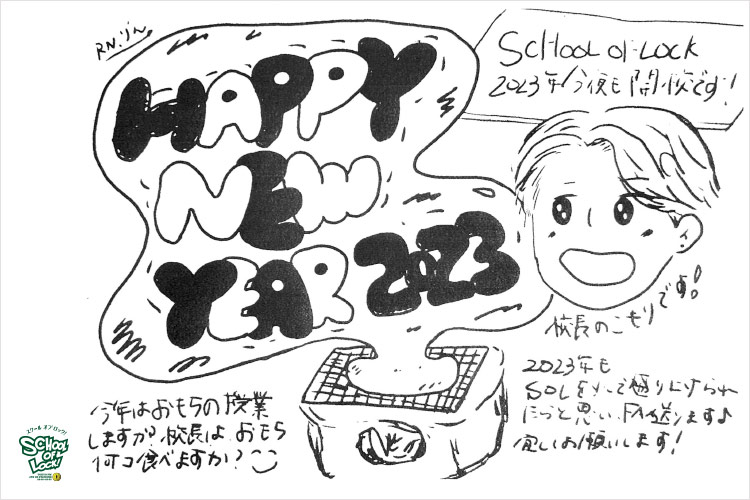 R.N.りん
HAPPY
NEW
YEAR 2023
SCHOOL OF LOCK
2023年今夜も開校です!
校長のこもりです!
今年はおもちの授業
しますか?校長は、おもち
何コ食べますか?
2023年も
SOLをみんなで盛り上げられ
たらと思い、FAX送ります♪
宜しくお願いします!
スクール オブ ロック!
SCHOOL
OF
LOCK!